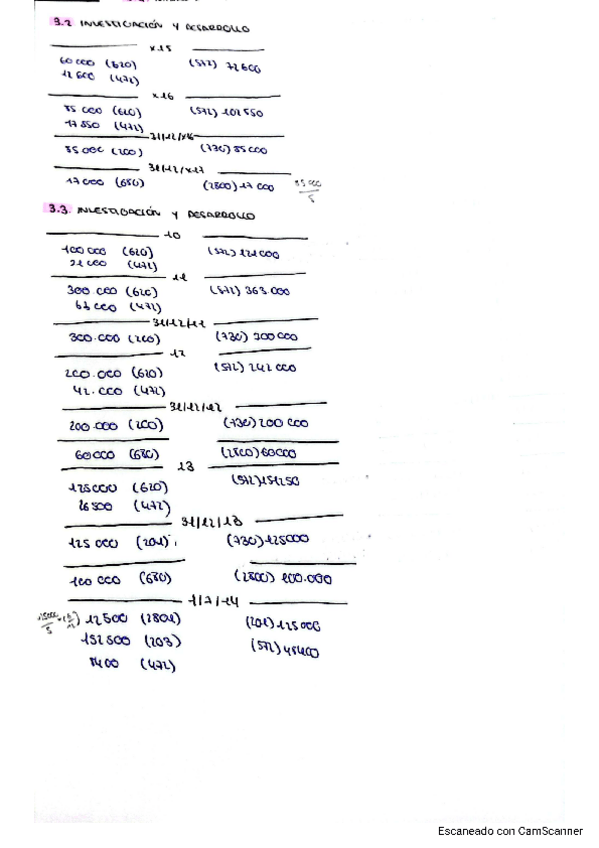 3.2 INVESTIGACIÓN Y DESARROLLO
x15
60 000 (620) (572) 72 600
12 600 (472)
x16
85 000 (620) (572) 102 850
17 850 (472)
31/12/x16
85 000 (200) (730) 85 000
31/12/x17
17 000 (680) (2800) 17 000 85 000
5
3.3. INVESTIGACIÓN Y DESARROLLO
10
100 000 (620) (572) 121 000
21 000 (472)
11
300.000 (620) (572) 363.000
63 000 (472)
31/12/11
300.000 (200) (730) 300 000
12
200.000 (620) (572) 242 000
42.000 (472)
31/12/12
200.000 (200) (730) 200 000
60000 (680) (2800) 60000
13
125000 (620) (572) 151250
26 500 (472)
31/12/13
125 000 (201) (730) 125000
100 000 (680) (2800) 100.000
1/7/14
12 500 (2801) (201) 125 000
5
152 500 (203) (572) 48400
8400 (472)
Escaneado con CamScanner